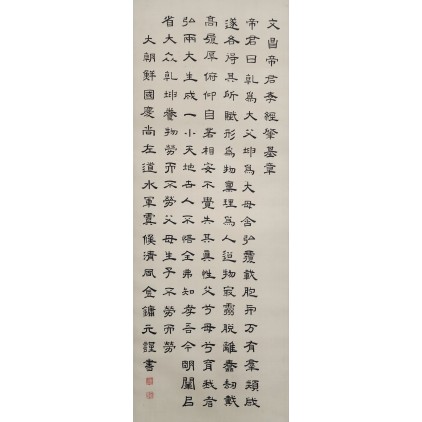 文昌帝君孝經肇基章
帝君曰乾為大父坤為大母含弘覆載胞與万有羣類咸
遂各得其所賦形為物稟理為人超物最靈脫離蠢劫戴
高履厚俯仰自若相安不覺失其真性父兮母兮育我者
弘兩大生成一小天地世人不悟全弗知孝吾今明闡以
省大众乾坤養物勞而不勞父母生子不勞而勞
大朝鮮國慶尚左道水軍虞候清風金鏞元謹書